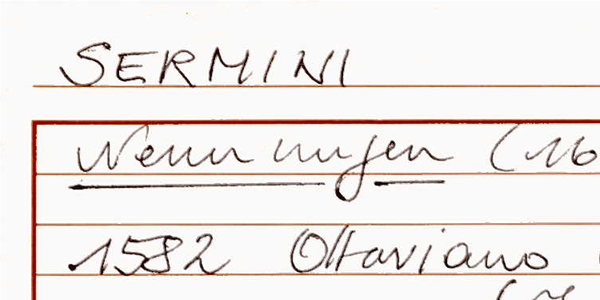 SERMINI
Nennungen (16
1582 Ottaviano (